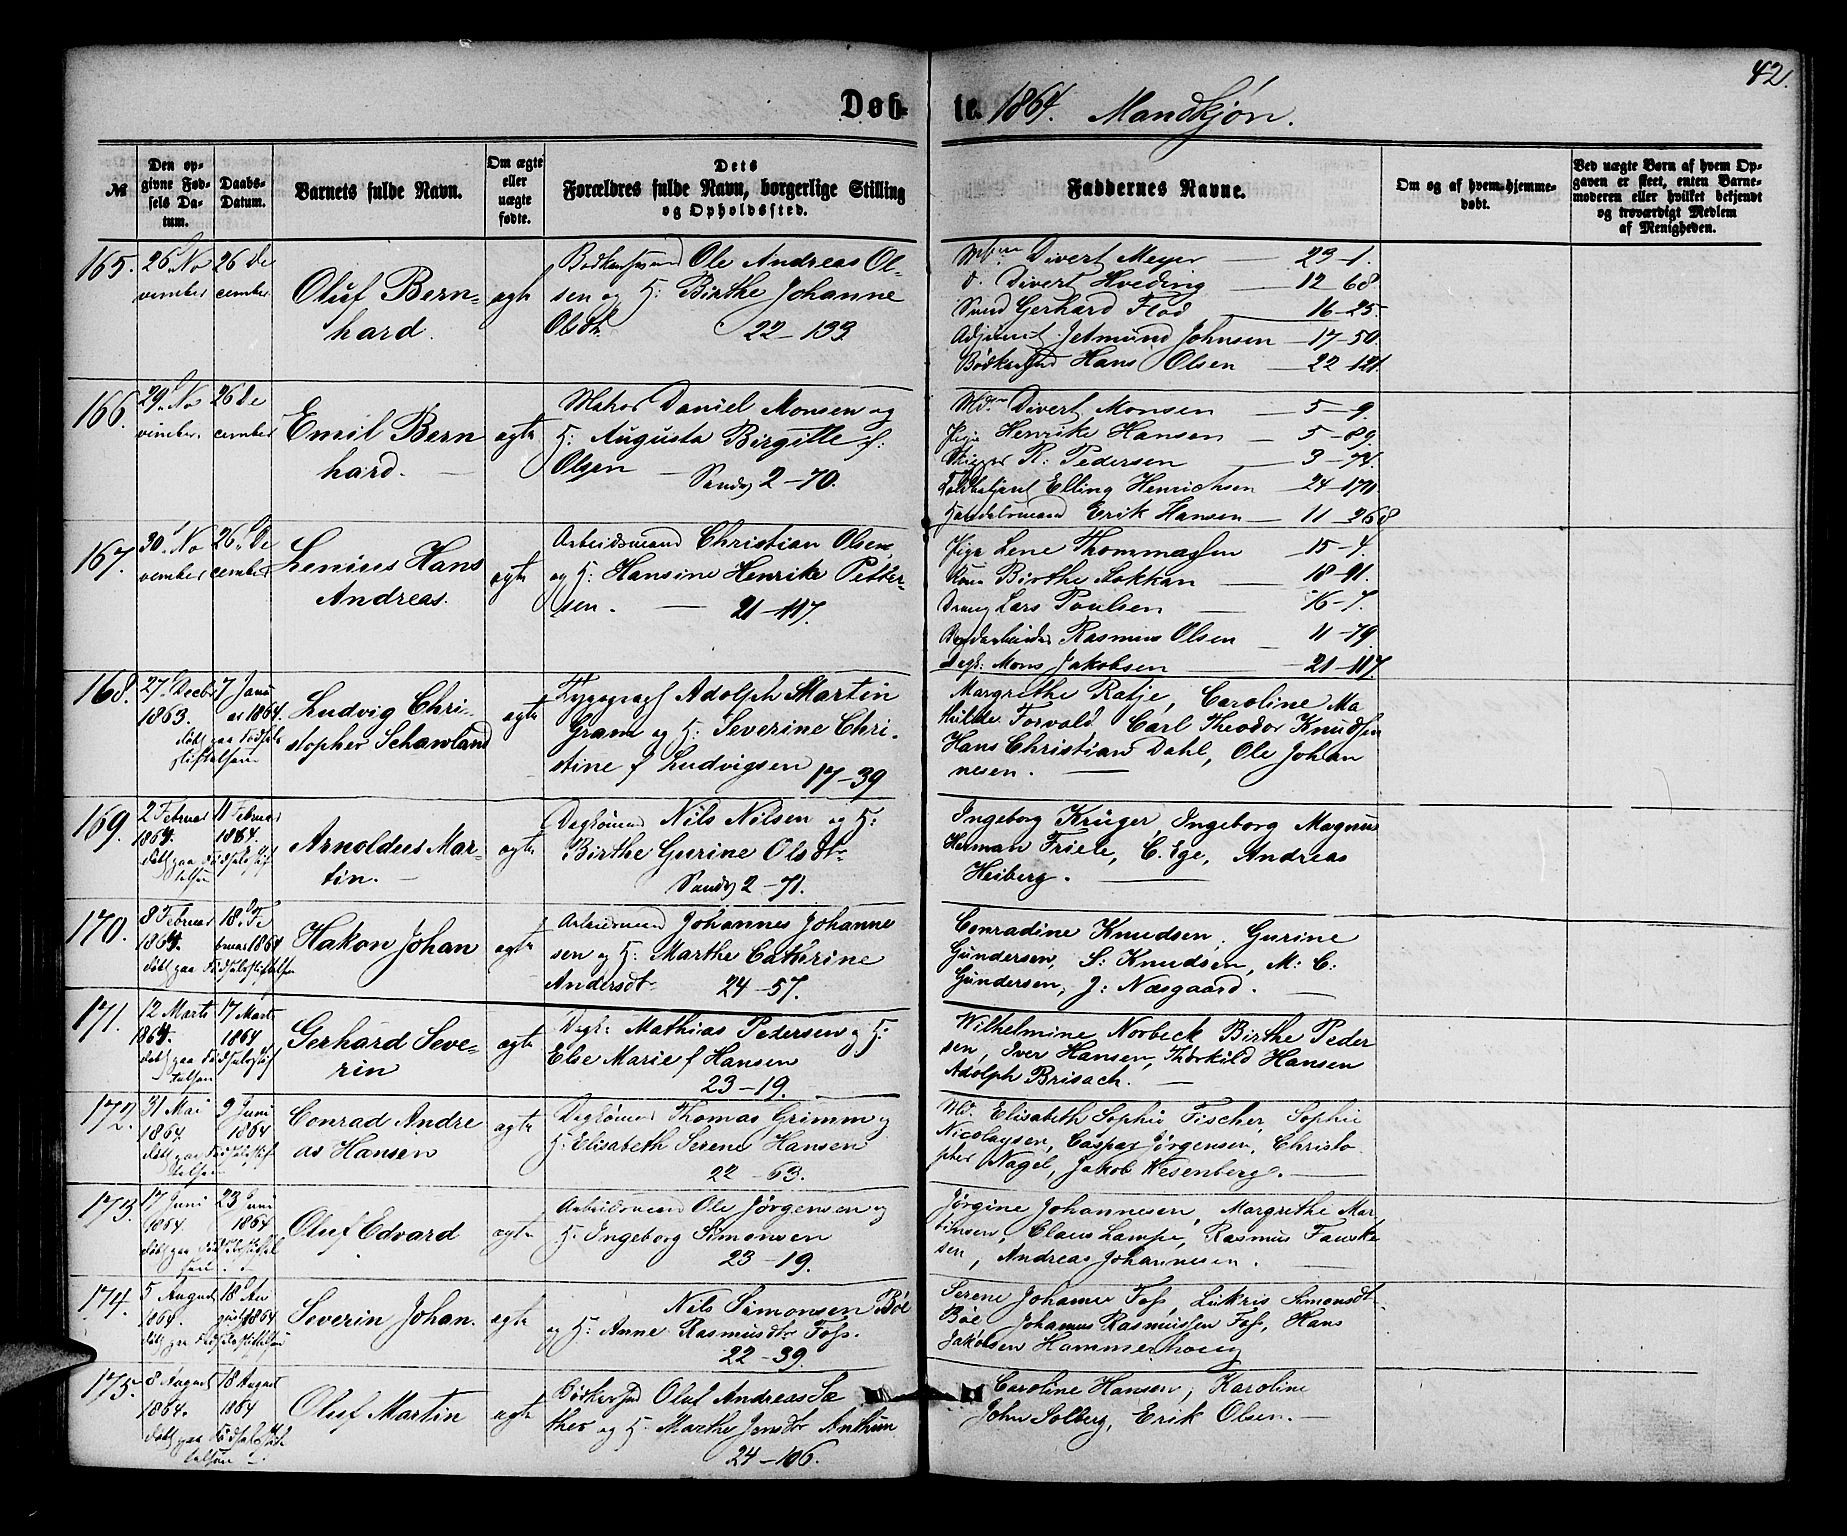 42.
Døb- te. 1864. Mandkjøn.
№
Den op-
givne Fød-
sels Da-
tum.
Daabs-
Datum.
Barnets fulde Navn.
Om ægte
eller
uægte
fødte.
Dets
Forældres fulde Navn, borgerlige Stilling
og Opholdssted.
Faddernes Navne.
Om og af hvem hjemme-
døbt.
Ved uægte Børn af hvem Op-
gaven er skeet, enten Barne-
moderen eller hvilket bekjendt
og troværdigt Medlem
af Menigheden.
165. 26 No
vember
26 De
cember
Oluf Bern-
hard.
ægte
Ole Andreas Ol-
sen og H: Birthe Johanne
Olsdt. 22-133
Divert Meyer — 23-1.
Divert Hveding — 12-68
Gerhard Flod 16-25.
Adjunct Jetmund Johnsen — 17-50.
Hans Olsen — 22-121.
166. 29 No
vember
26 De
cember
Emil Bern
hard.
ægte
Matros Daniel Monsen og
H: Augusta Birgitte f:
Olsen — Sandv 2-70.
Md. Divert Monsen — 5-9.
Pige Henrike Hansen — 5-89.
R: Pedersen — 3-74.
Elling Henrichsen — 24-170
Handelsmand Erik Hansen — 11-268
167. 30 No
vember
26 De
cember
Lenius Hans
Andreas.
ægte
Arbeidsmand Christian Olsen
og H: Hansine Henrike Petter-
sen. — 21-117.
Pige Lene Thommassen — 15-4.
Birthe Stokkan — 18-91.
Dreng Lars Poulsen — 16-7.
Rasmus Olsen — 11-79
Dagk: Mons Jakobsen — 21-117.
168. 27 Decbr
1863.
7 Janu
ar 1864.
døbt paa Fødsels
stiftelsen
Ludvig Chri-
stopher Schawland
ægte
Typograf Adolph Martin
Gram og H: Severine Chri-
stine f Ludvigsen 17-39
Margrethe Ratje, Caroline Ma
thilde Forvald Carl Theodor Knudsen
Hans Christian Dahl, Ole Johan
nesen. —
169. 2 Februar
1864.
11 Februar
1864
døbt paa Fødselsstif
telsen
Arnoldus Mar-
tin. —
ægte
Dagkmd Nils Nilsen og H:
Birthe Gurine Olsdt-
Sandv 2-71.
Ingeborg Krüger, Ingeborg Magnus
Herman Friele, C. Ege, Andreas
Heiberg. —
170. 8 Februar
1864.
18 Fe
bruar 1864
døbt paa Fødselsstiftelsen
Hakon Johan
ægte
Arbeidsmand Johannes Johanne
sen og H: Marthe Cathrine
Andersdt- 24-57.
Conradine Knudsen, Gurine
Gundersen, S: Knudsen, M: C:
Gundersen, J: Næsgaard. —
171. 12 Marts
1864.
17 Marts
1864
døbt paa Fødselsstif
telsen
Gerhard Seve-
rin
ægte
Dagk: Mathias Pedersen og H:
Else Marie f Hansen
23-19.
Wilhelmine Norbeck Birthe Peder
sen, Iver Hansen, Thorkild Hansen
Adolph Brisach. —
172. 31 Mai
1864.
9 Juni
1864
døbt paa Fødselsstif
telsen
Conrad Andre
as Hansen
ægte
Dagkmd Thomas Grimm og
H: Elisabeth Serene Hansen
22-63.
Md. Elisabeth Sophie Fischer, Sophie
Nicolaysen, Caspar Jørgensen, Christo-
pher Nagel, Jakob Wesenberg. —
173. 17 Juni
1864.
23 Juni
1864
døbt paa Fødselsstiftel
sen
Oluf Edvard
ægte
Arbeidsmand Ole Jørgensen og
H: Ingeborg Simonsen
23-19.
Jørgine Johannesen, Margrethe Mar
tinsen, Claus Lampe, Rasmus Fauska
sen, Andreas Johannesen. —
174. 5 August
1864.
18 Au
gust 1864
døbt paa Fødselsstiftelsen
Severin Johan.
ægte
Nils Simonsen Bøe
og H: Anne Rasmusdtr Foss.
22-39.
Serene Johanne Foss, Simonsdt.
Bøe, Johannes Rasmussen Foss, Hans
Jakobsen Hammerhoug
175. 8 August
1864.
18 August
1864
døbt paa Fødselsstif
telsen
Oluf Martin
ægte
Oluf Andreas Sæ
ther og H: Marthe Jensdtr Anthun
24-106.
Caroline Hansen, Karoline
John Solberg, Erik Olsen. —